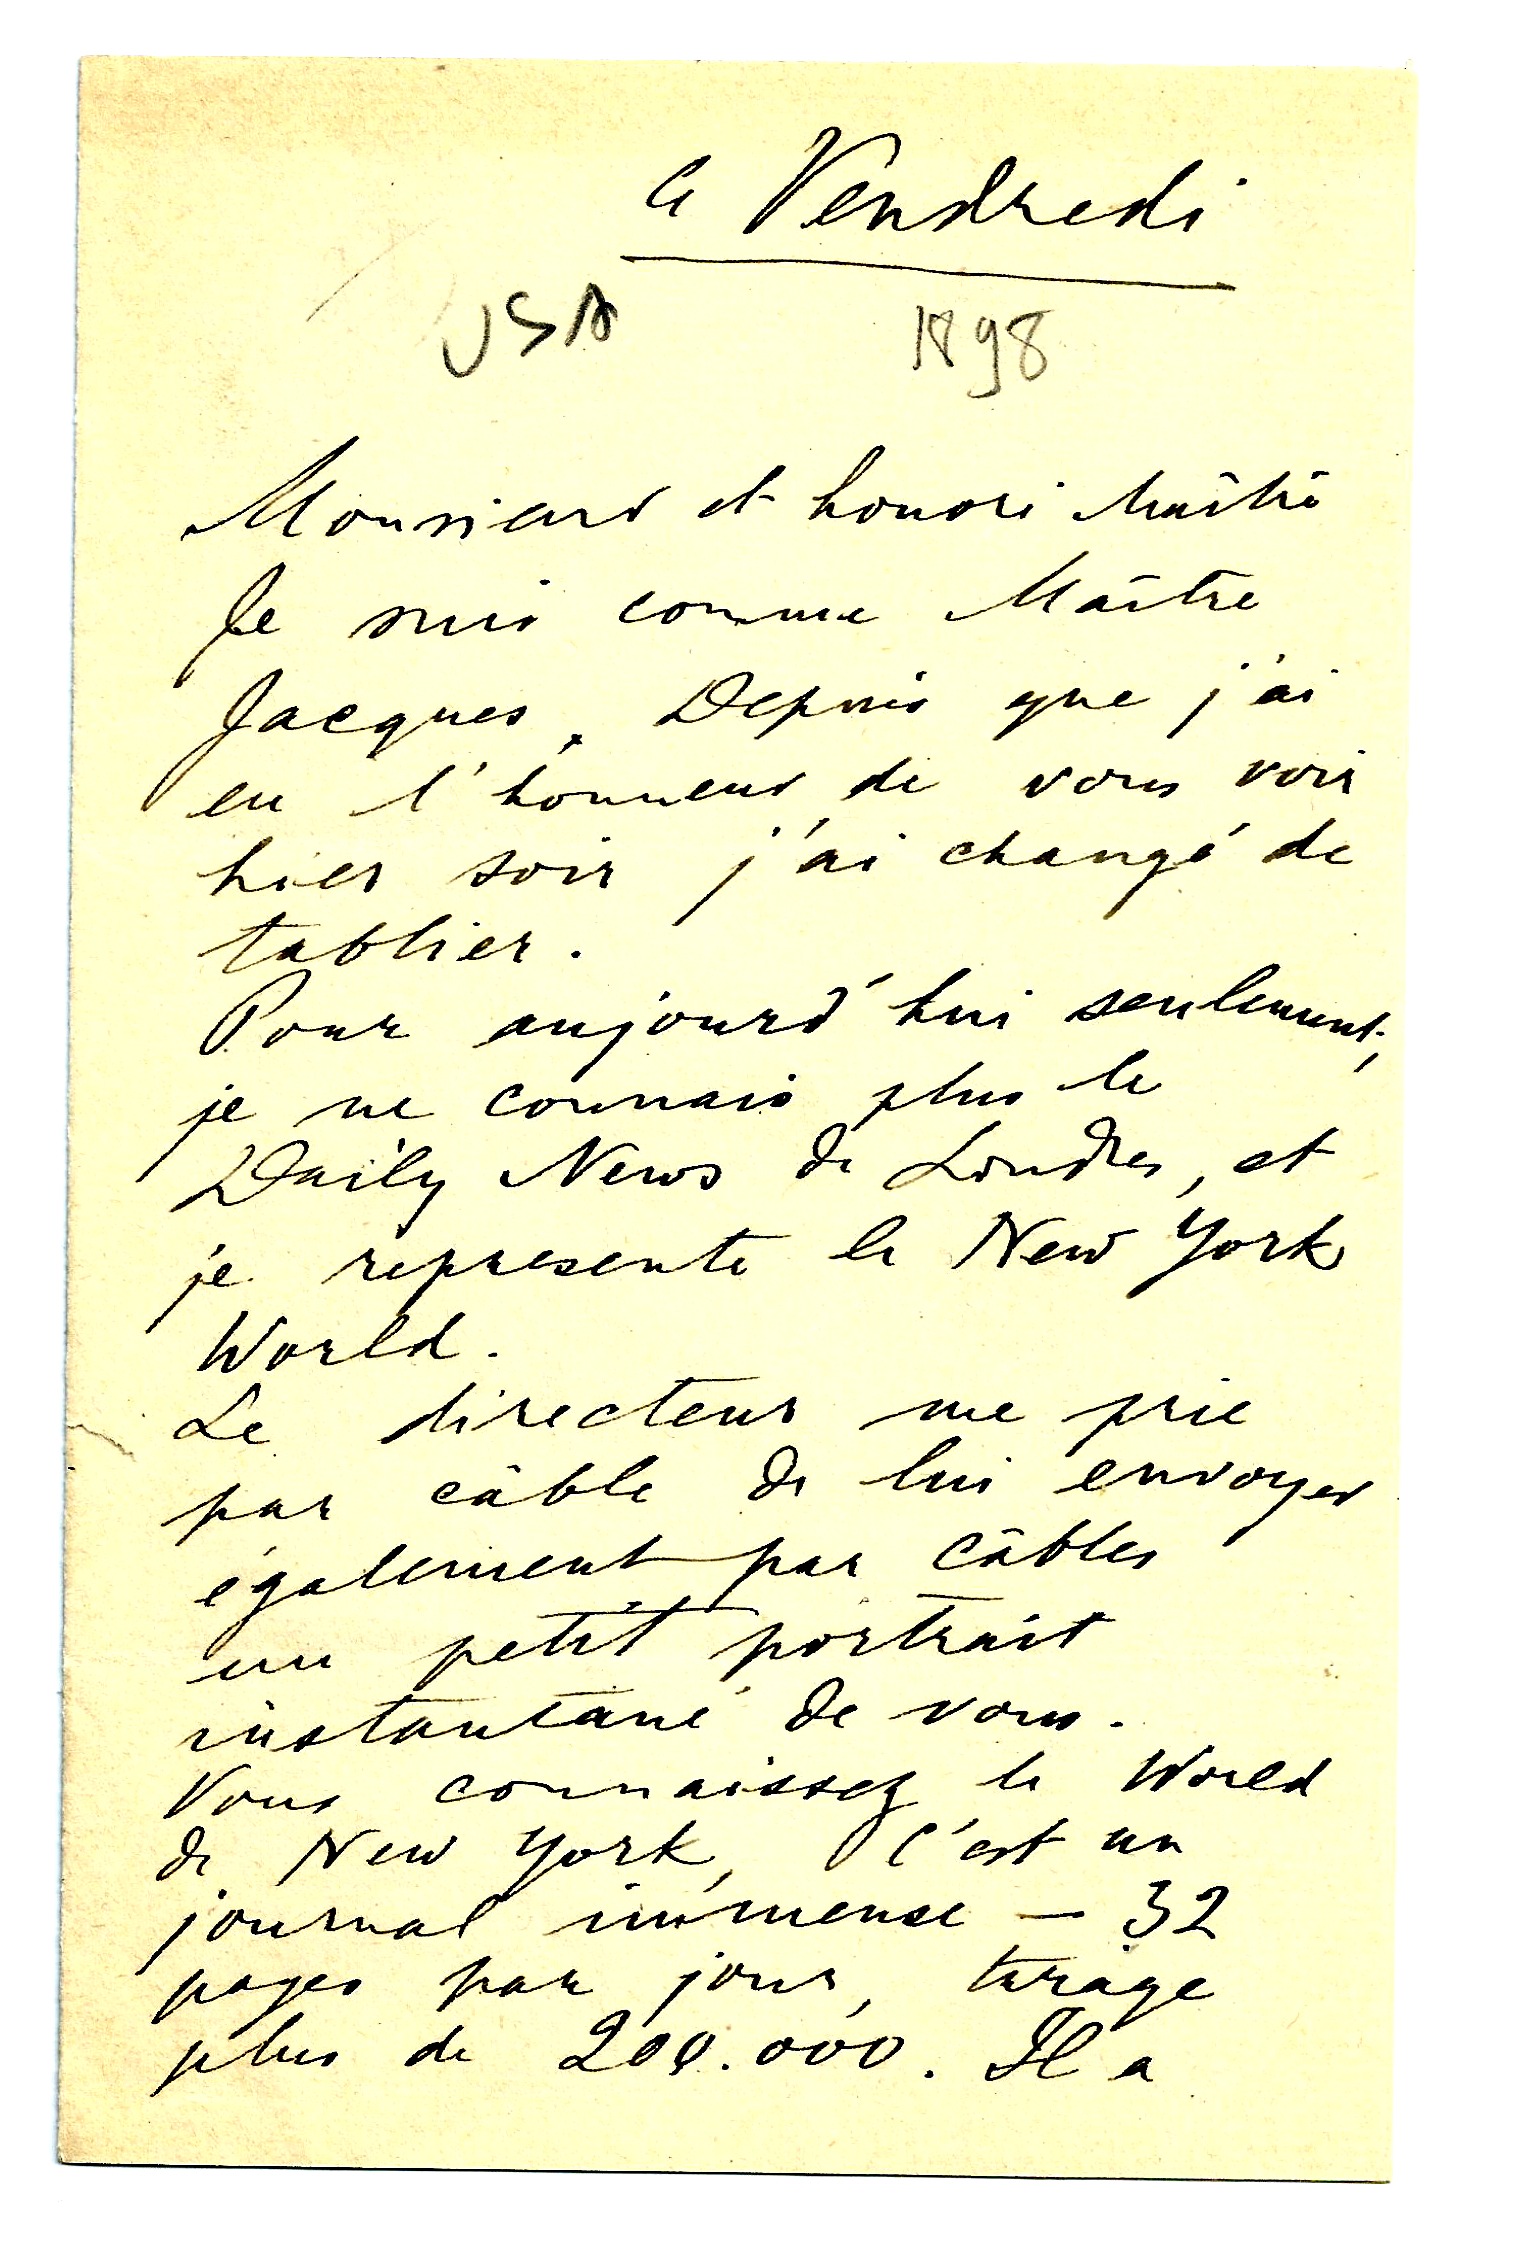 le Vendredi
USA 1898
Monsieur et honoré Maître
Je suis comme Maître
Jacques. Depuis que j'ai
eu l'honneur de vous voir
hier soir j'ai changé de
tablier.
Pour aujourd'hui seulement,
je ne connais plus le
Daily News de Londres, et
je represente le New York
World.
Le directeur me prie
par câble de lui envoyer
également par câbles
un petit portrait
instantané de vous.
Vous connaissez le World
de New York, C'est un
journal immense – 32
pages par jour, tirage
plus de 200.000. Il a